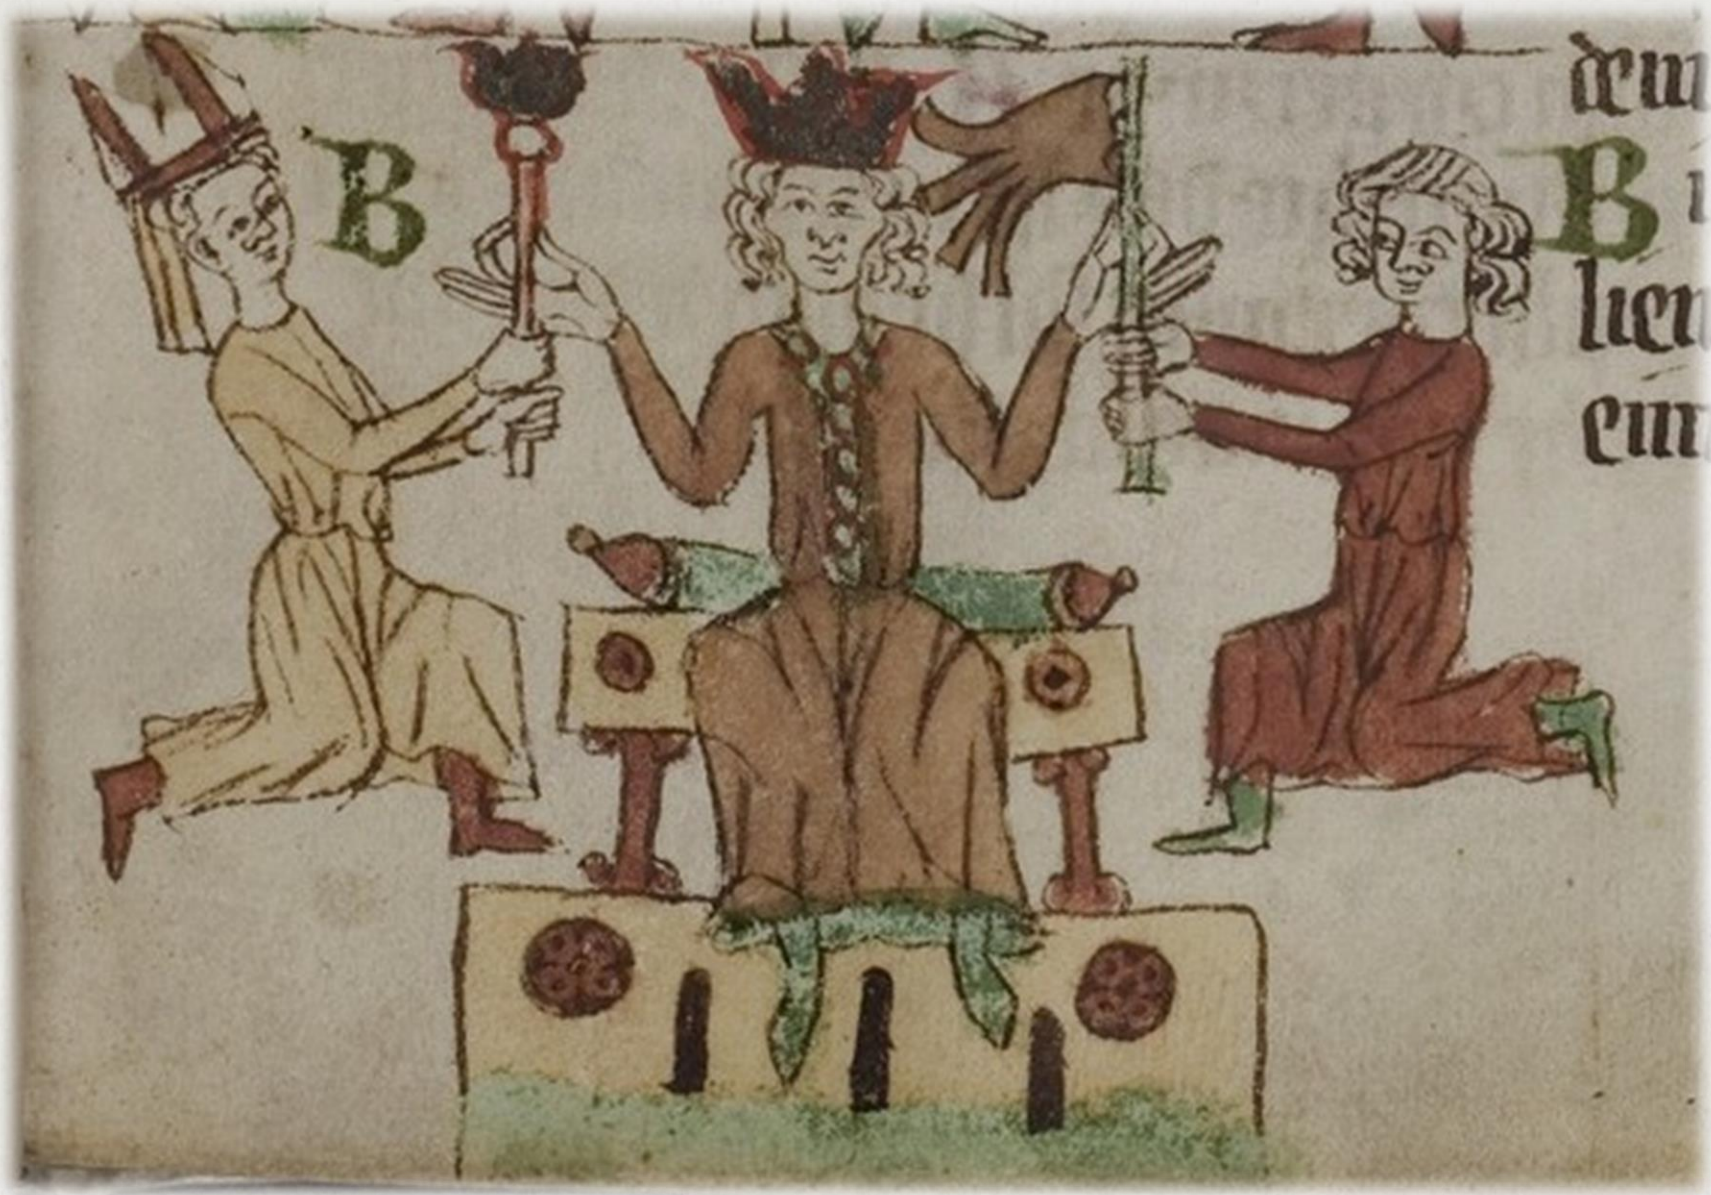 B
dem
B
lien
ein